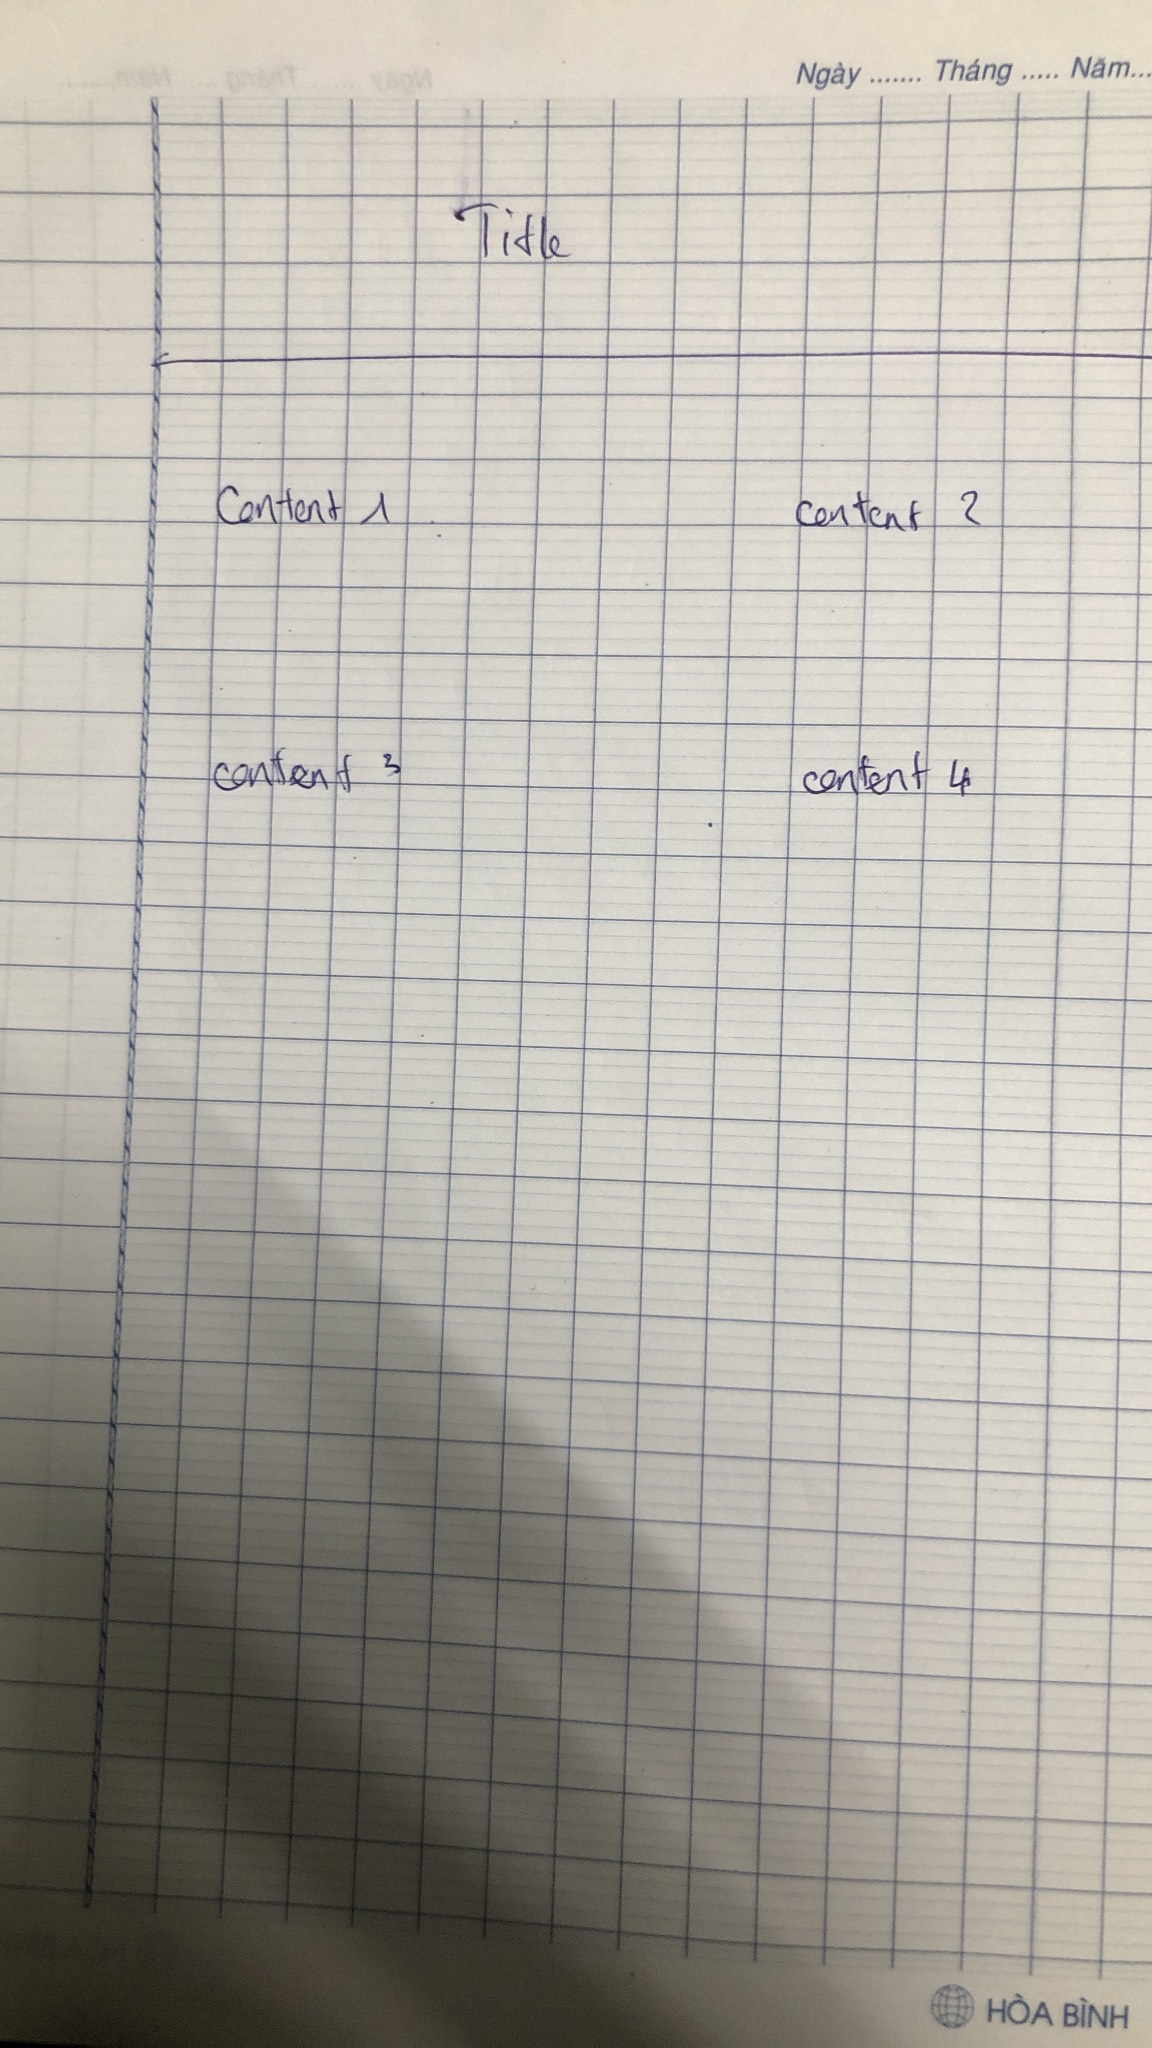 Ngày ....... Tháng ..... Năm...
Title
Content 1
content 2
content 3
content 4
HÒA BÌNH